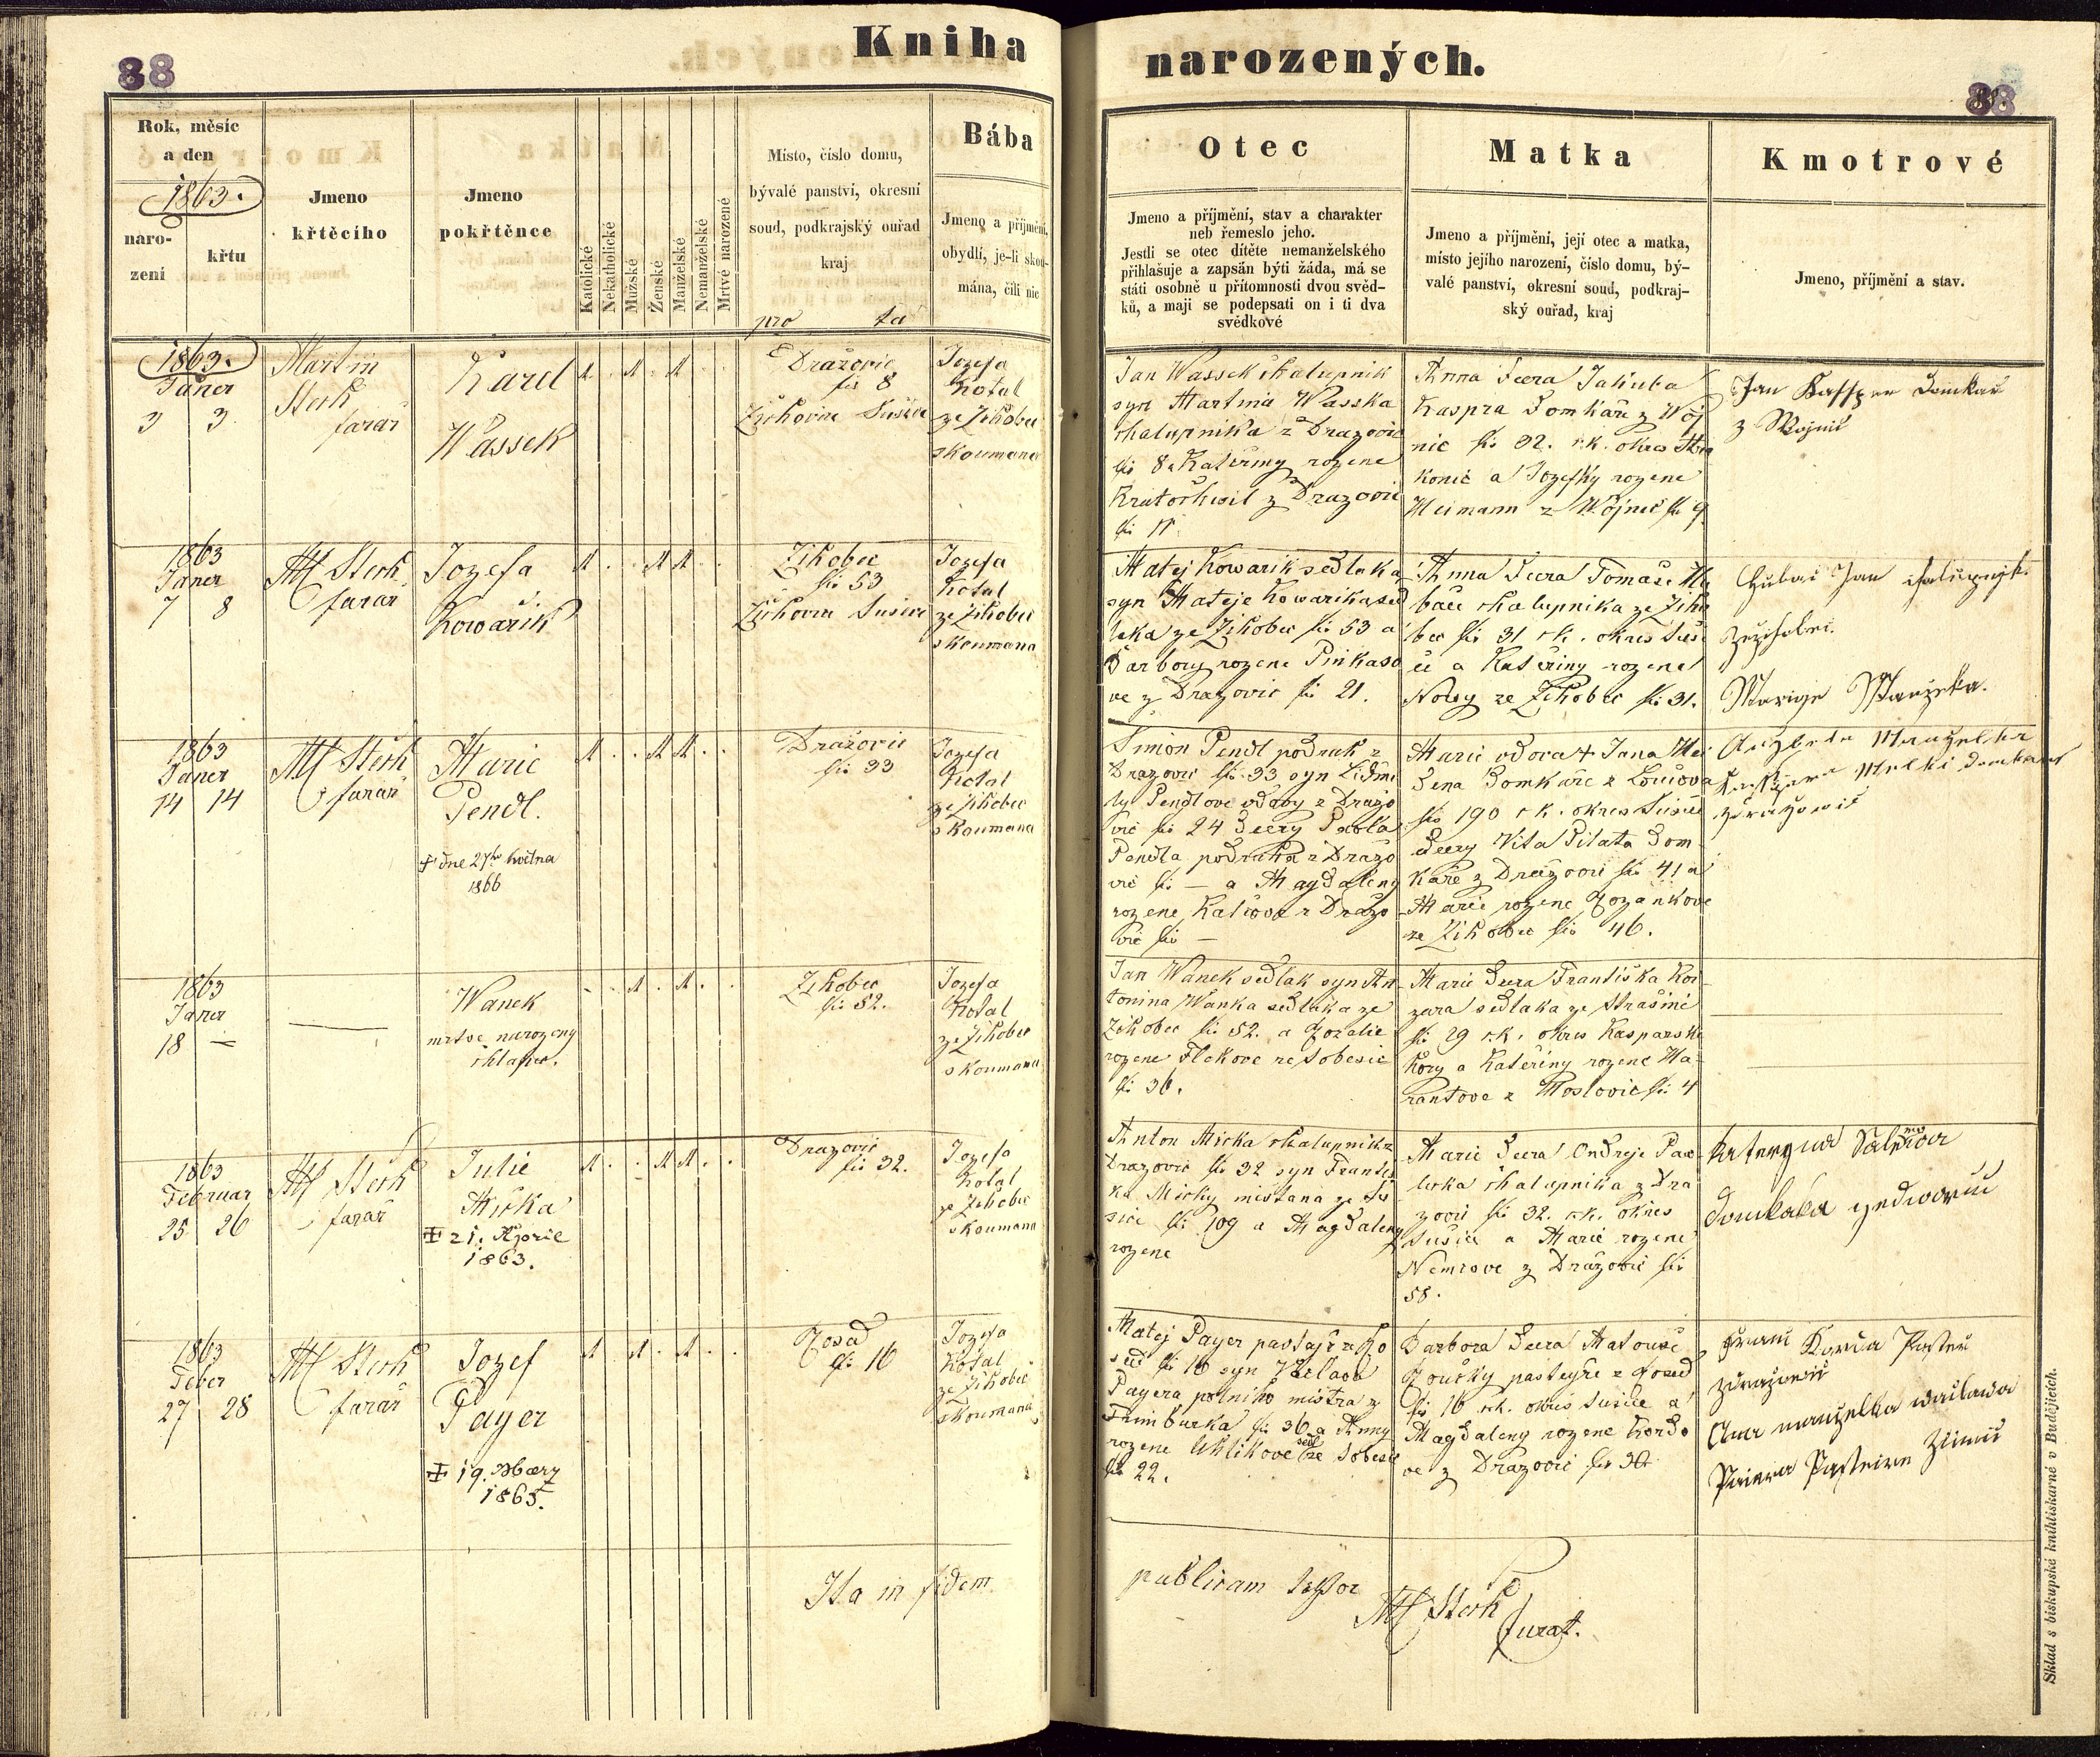 Kniha narozených.
38
38
Rok, měsíc
a den
1863.
naro-
zení
křtu
Jmeno
křtěcího
Jmeno
pokřtěnce
Katolické
Nekatholické
Mužské
Ženské
Manželské
Nemanželské
Mrtvě narozené
Místo, číslo domu,
bývalé panství, okresní
soud, podkrajský ouřad
kraj
Bába
Jmeno a příjmění,
obydlí, je-li skou-
mána, čili nic
Otec
Jmeno a příjmění, stav a charakter
neb řemeslo jeho.
Jestli se otec dítěte nemanželského
přihlašuje a zapsán býti žáda, má se
státi osobně u přítomnosti dvou svěd-
ků, a mají se podepsati on i ti dva
svědkové
Matka
Jmeno a příjmění, její otec a matka,
místo jejího narození, číslo domu, bý-
valé panství, okresní soud, podkraj-
ský ouřad, kraj
Kmotrové
Jmeno, příjmění a stav.
1863.
Janer
3 3
Martin
Sterk
farař
Karel
Wassek
Dražovic
čis 8
Žichovice Sušice
Jozefa
Kotal
ze Žikobec
skoumana
Jan Wassek chalupnik
syn Martina Wasska
chalupnika z Drazovic
čis 8 a Kateřiny rozene
Kratochwil z Drazovic
čis 17
Anna dcera Jakuba
Kaspra domkaře z Woj
nic čis 32. r.k. okres Stra
konic a Jozefky rozene
Heimann z Wojnic čis 9
Jan Kassper domkař
z Wojnic
1863
Janer
7 8
M Sterk
farar
Jozefa
Kowařik
Zikobec
čis 53
Žichovic Susice
Jozefa
Kotal
ze Zikobec
skoumana
Matej Kowarik sedlak a
syn Mateje Kowarika sed
laka ze Zikobec čis 53 a
Barbory rozene Pinkaso
ve z Drazovic čis 21.
Anna dcera Tomaše Hu
bače chalupnika ze Ziko
bec čis 31 r.k. okres Susi
ce a Kateřiny rozene
Nowy ze Zikobec čis 31.
Hubač Jan chalupnjk
Marige Manzelka.
1863
Janer
14 14
M Sterk
farar
Marie
Pendl.
† dne 27ho května
1866
Dražovic
čis 33
Jozefa
Kotal
ze Zikobec
skoumana
Simon Pendl podruh z
Drazovic čis 33 syn Lidmi
ly Pendlove vdovy z Drazo
vic čis 24 dcery Pavla
Pendla podruha z Drazo
vic čis — a Magdaleny
rozene Kalcove z Drazo
vic čis —
Marie vdova † Jana Hei
dena domkaře z Loučova
čis 190 r.k. okres Susice
dcery Vita Pilata dom
kaře z Drazovic čis 41 a
Marie rozene Rozankove
ze Zikobec čis 46.
Alzbeta Manzelka
1863
Janer
18 —
Wanek
mrtvě narozeny
chlapec.
Zikobec
čis 52.
Jozefa
Kotal
ze Zikobec
skoumana
Jan Wanek sedlak syn An
tonina Wanka sedlaka ze
Zikobec čis 52. a Rozalie
rozene Flekove ze Sobesic
čis 36.
Marie dcera Frantiska Koi
zara sedlaka ze Strašině
čis 29 r.k. okres Kasparske
Hory a Kateřiny rozene Ha
rantove z Moslovic čis 4
1863
Februar
25 26
M Sterk
farař
Julie
Micka
† 21. Aprile
1863.
Drazovic
čis 32.
Jozefa
Kotal
ze Zikobec
skoumana
Anton Micka chalupnik z
Drazovic čis 32 syn Frantis
ka Micky mistana ze Su
sice čis 109 a Magdaleny
rozene
Marie dcera Ondreje Paw
licka chalupnika z Dra
zovic čis 32. r.k. okres
Sušice a Marie rozene
Nemcove z Drazovic čis
58.
1863
Feber
27 28
M Sterk
farař
Jozef
Payer
† 19. Maerz
1865.
Rosed
čis 16
Jozefa
Kotal
ze Zikobec
skoumana
Matej Payer pastajř z Ro
sed čis 16 syn Václava
Payera polniho mistra z
Frimburka čis 36 a Anny
rozene Uhlikove ze Sobesic
čis 22.
Barbora dcera Matouse
Roučky pasteyře z Rosed
čis 16 r.k. okres Susice a
Magdaleny rozene Kordo
ve z Drazovic čis 30
Anna manzelka waclawa
Ita in fidem publicam Testor
M Sterk
Curat.
Sklad s biskupské knihtiskarně v Budějicích.